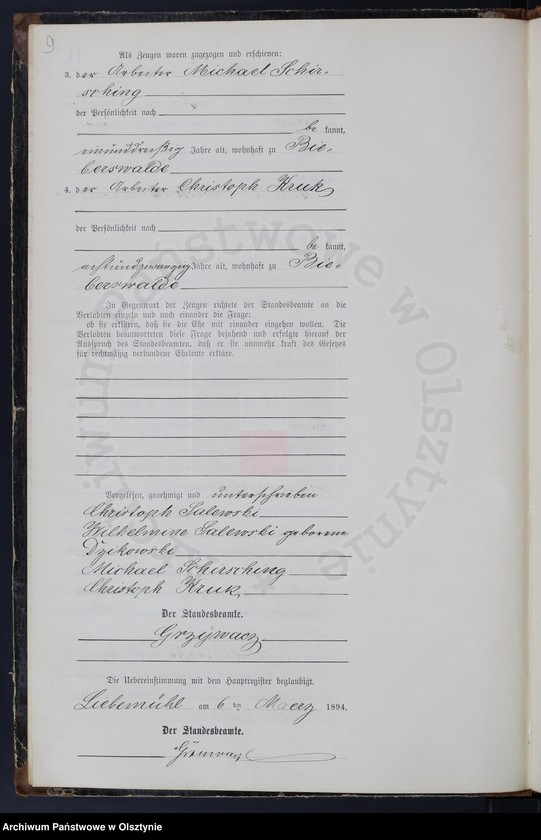 9
Als Zeugen waren zugezogen und erschienen:
3. der Arbeiter Michael Schir-
sching
der Persönlichkeit nach
be kannt,
einunddreißig Jahre alt, wohnhaft zu Bie-
berswalde
4. der Arbeiter Christoph Kruk
der Persönlichkeit nach
be kannt,
achtundzwanzig Jahre alt, wohnhaft zu Bie-
berswalde
In Gegenwart der Zeugen richtete der Standesbeamte an die
Verlobten einzeln und nach einander die Frage:
ob sie erklären, daß sie die Ehe mit einander eingehen wollen. Die
Verlobten beantworteten diese Frage bejahend und erfolgte hierauf der
Ausspruch des Standesbeamten, daß er sie nunmehr kraft des Gesetzes
für rechtmäßig verbundene Eheleute erkläre.
Vorgelesen, genehmigt und unterschrieben
Christoph Salewski
Wilhelmine Salewski geborene
Dzikowski
Michael Schirsching
Christoph Kruk
Der Standesbeamte.
Grzywacz
Die Uebereinstimmung mit dem Hauptregister beglaubigt.
Liebemühl am 6 ten Maerz 1894.
Der Standesbeamte.
Archiwum Państwowe w Olsztynie
Archiwum Państwowe w Olsztynie